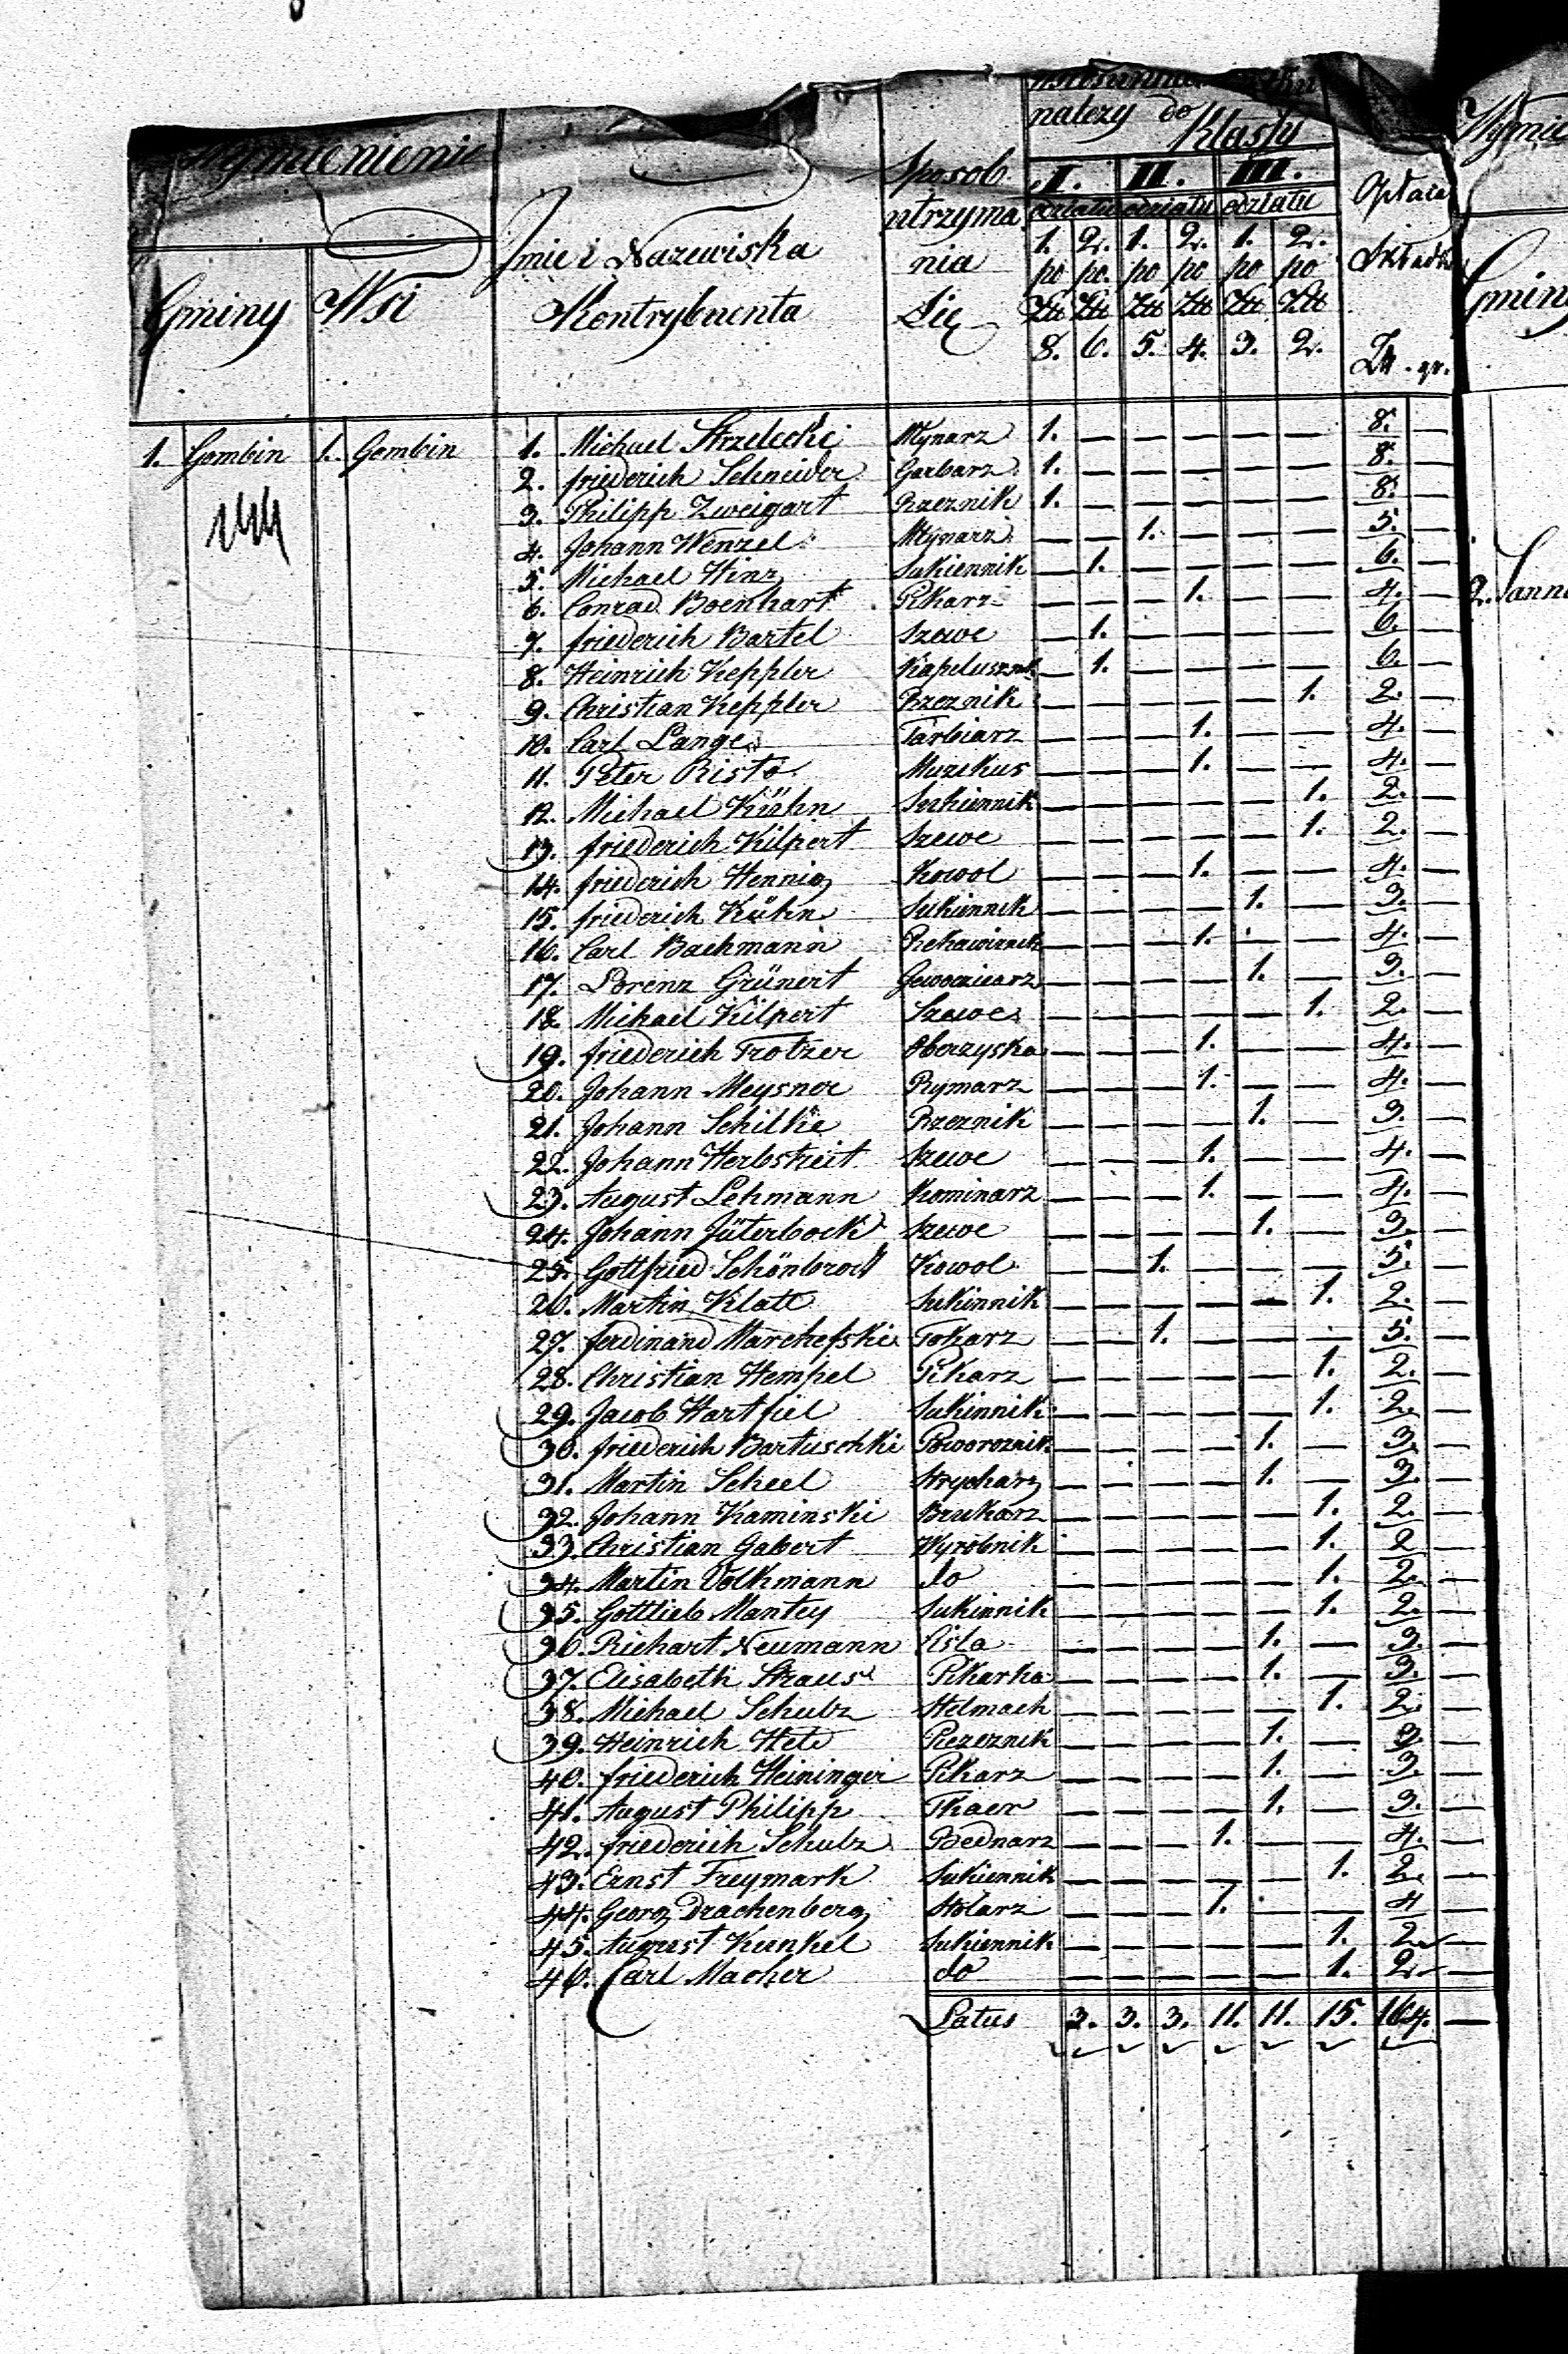 Wymienienie
należy do Klassy
Gminy
Wsi
Jmie i Nazewiska
Kontrybuenta
Sposob
utrzyma
nia
Się
I. II. III.
odziału odziału odziału
1. 2. 1. 2. 1. 2.
po po. po po po po
Złt Złt Złt Złt Złt Złt
8. 6. 5. 4. 3. 2.
Opłaca
Składki
Złt. gr.
1. Gombin 1. Gombin 1. Michael Strzelecki Młynarz 1. — — — — — 8. —
2. friederich Schneider Garbarz 1. — — — — — 8. —
3. Philipp Zweigart Rzeznik 1. — — — — — 8. —
4. Johann Wenzel Młynarz — — 1. — — — 5. —
5. Michael Hinz Sukiennik — 1. — — — — 6. —
6. Conrad Boenhart Pikarz — — — 1. — — 4. —
7. friederich Bartel Szewc — 1. — — — — 6. —
8. Heinrich Keppler Kapelusznik — 1. — — — — 6. —
9. Christian Keppler Rzeznik — — — — — 1. 2. —
10. Carl Lange Farbiarz — — — 1. — — 4. —
11. Peter Risto Muzekus — — — 1. — — 4. —
12. Michael Kühn Sukiennik — — — — — 1. 2. —
13. friederich Kilpert Szewc — — — — — 1. 2. —
14. friederich Hennig Kowol — — — 1. — — 4. —
15. friederich Kühn Sukiennik — — — — 1. — 3. —
16. Carl Bachmann Rekawicznik — — — 1. — — 4. —
17. Lorenz Grünert — — — — 1. — 3. —
18. Michael Kilpert Szewc — — — — — 1. 2. —
19. friederich Trotzer Oberzyska — — — 1. — — 4. —
20. Johann Meysner Rymarz — — — 1. — — 4. —
21. Johann Schilke Rzeznik — — — — 1. — 3. —
22. Johann Herbstreit Szewc — — — 1. — — 4. —
23. August Lehmann Kominarz — — — 1. — — 4. —
24. Johann Jüterbock Szewc — — — — 1. — 3. —
25. Gottfried Schönbrodt Kowol — — 1. — — — 5. —
26. Martin Klatt Sukinnik — — — — — 1. 2. —
27. ferdinand Marchefski Tokarz — — 1. — — — 5. —
28. Christian Hempel Pikarz — — — — — 1. 2. —
29. Jacob Hartfiel Sukinnik — — — — — 1. 2. —
30. friederich Bartuschki Poworoznik — — — — 1. — 3. —
31. Martin Scheel Strycharz — — — — 1. — 3. —
32. Johann Kaminski Brukarz — — — — — 1. 2. —
33. Christian Gabert Wyrobnik — — — — — 1. 2 —
34. Martin Volkmann do — — — — — 1. 2. —
35. Gottlieb Mantey Sukinnik — — — — — 1. 2. —
36. Richart Neumann Cisla — — — — 1. — 3. —
37. Elisabeth Straus Pikarka — — — — 1. — 3. —
38. Michael Schulz Stelmach — — — — — 1. 2. —
39. Heinrich — — — — 1. — 3. —
40. friederich Heininger Pikarz — — — — 1. — 3. —
41. August Philipp Tkacz — — — — 1. — 3. —
42. friederich Schulz Bednarz — — — 1. — — 4. —
43. Ernst Freymark Sukiennik — — — — — 1. 2. —
44. Georg Drachenberg Stolarz — — — 1. — — 4 —
45. August Kunkel Sukiennik — — — — — 1. 2 —
46. Carl Macher do — — — — — 1. 2 —
Latus 3. 3. 3. 11. 11. 15. 164. —
Gminy
2. Sann